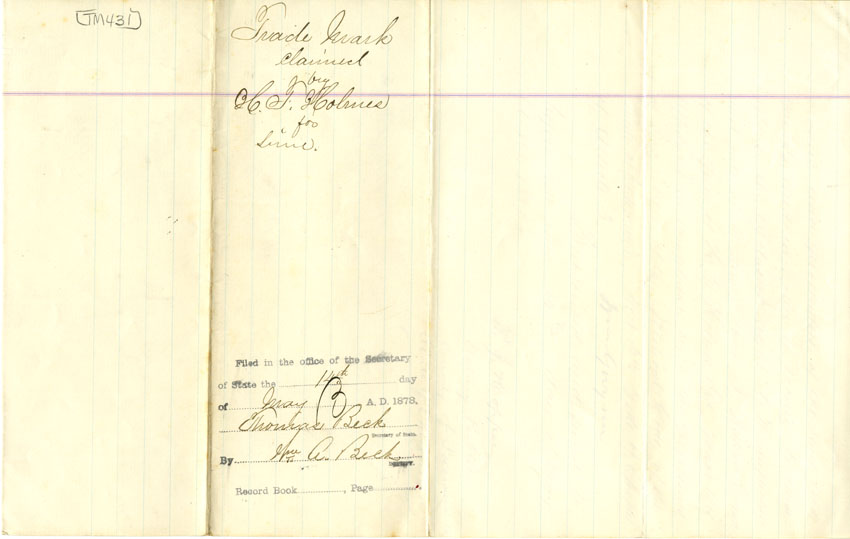 [TM431]
Trade Mark
claimed
by
H. T. Holmes
for
Lime.
Filed in the office of the Secretary
of State the 14th day
of May B A. D. 1878.
Thomas Beck
Secretary of State.
By Wm A. Beck
Deputy.
Record Book , Page